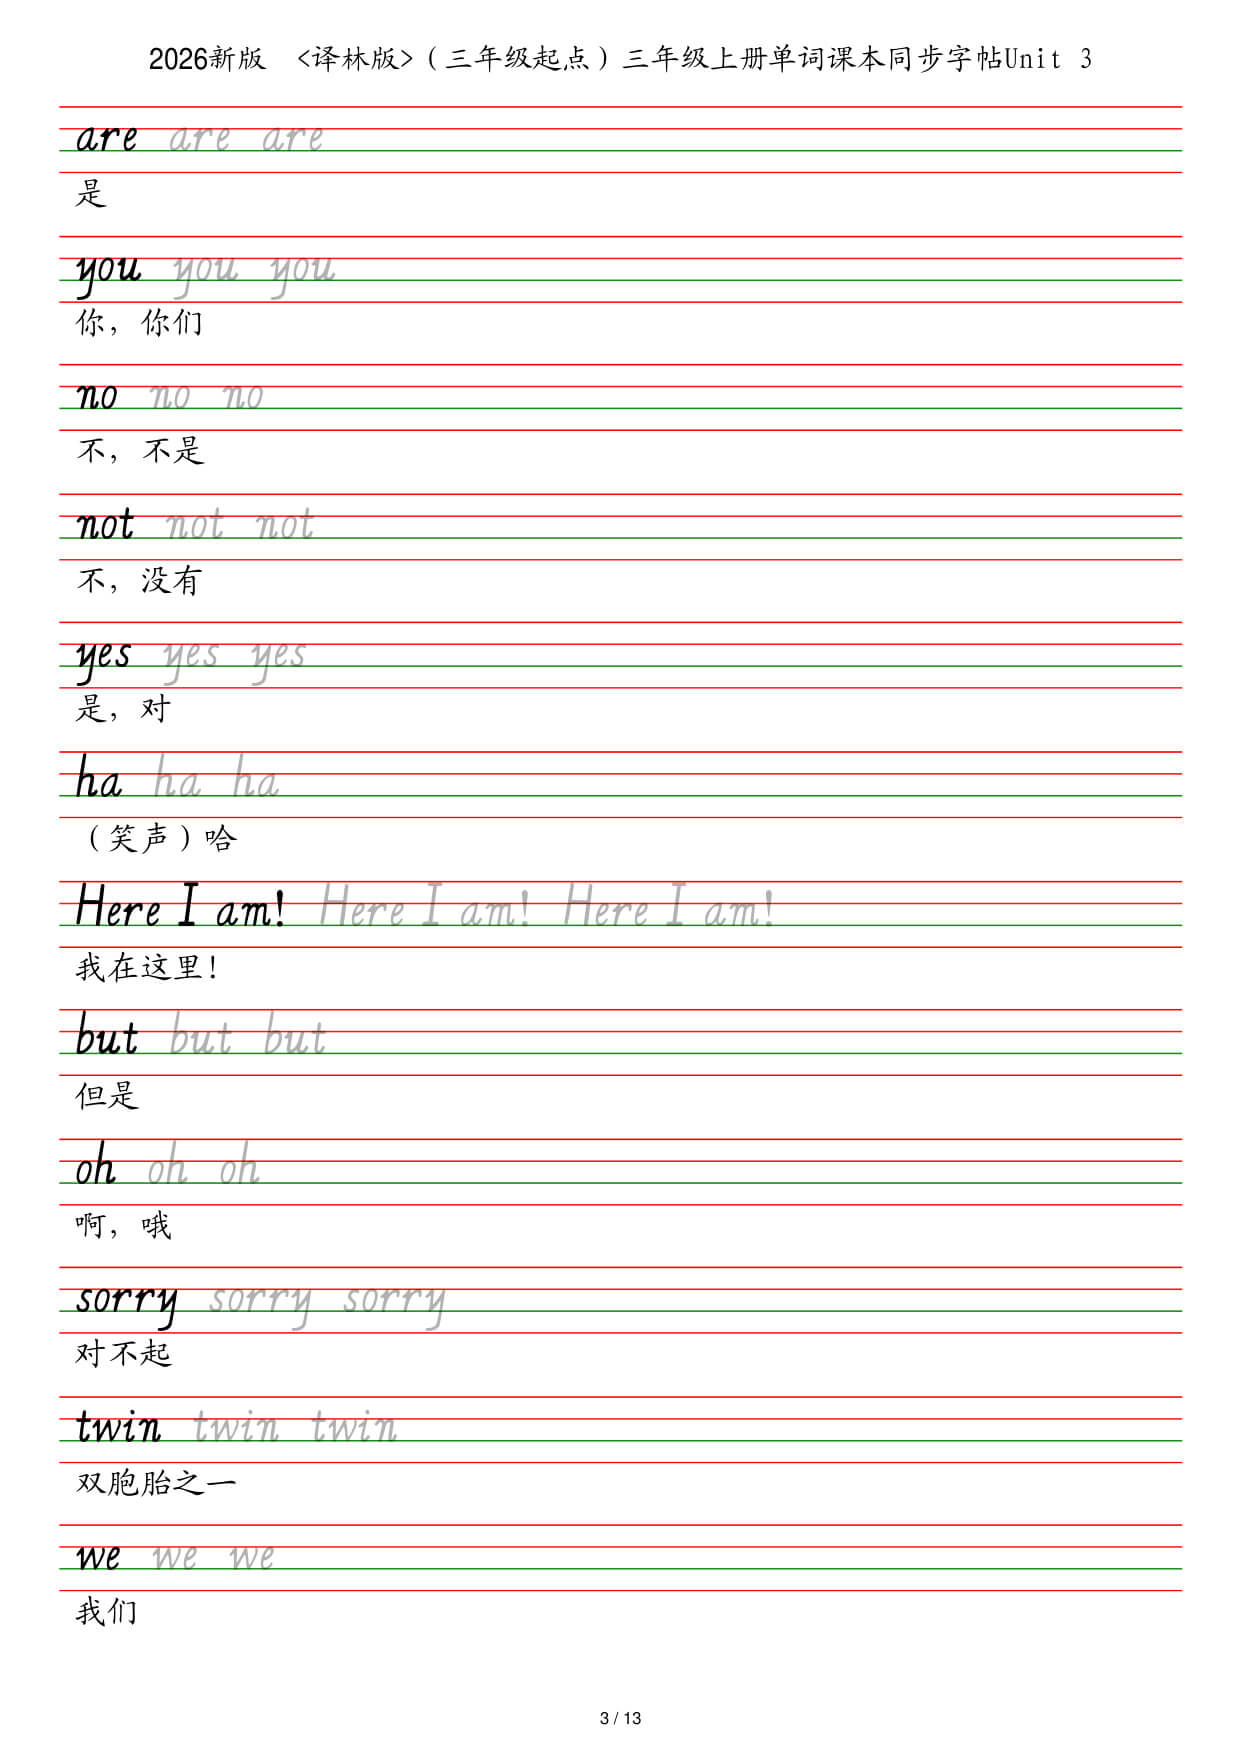 2026新版 <译林版>（三年级起点）三年级上册单词课本同步字帖Unit 3
are are are
是
you you you
你，你们
no no no
不，不是
not not not
不，没有
yes yes yes
是，对
ha ha ha
（笑声）哈
Here I am! Here I am! Here I am!
我在这里！
but but but
但是
oh oh oh
啊，哦
sorry sorry sorry
对不起
twin twin twin
双胞胎之一
we we we
我们
3 / 13